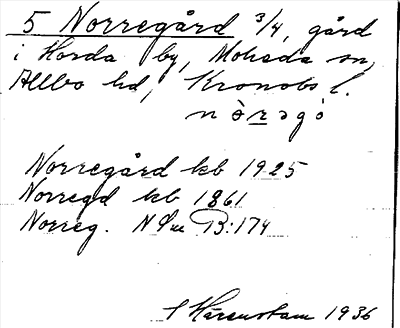 5 Norregård 3/4, gård
i Horda by, Moheda sn,
Allbo hd, Kronobs l.
nòrəgó
Norregård kb 1925
Norregd kb 1861
Norreg. NSm B:174
S Härenstam 1936